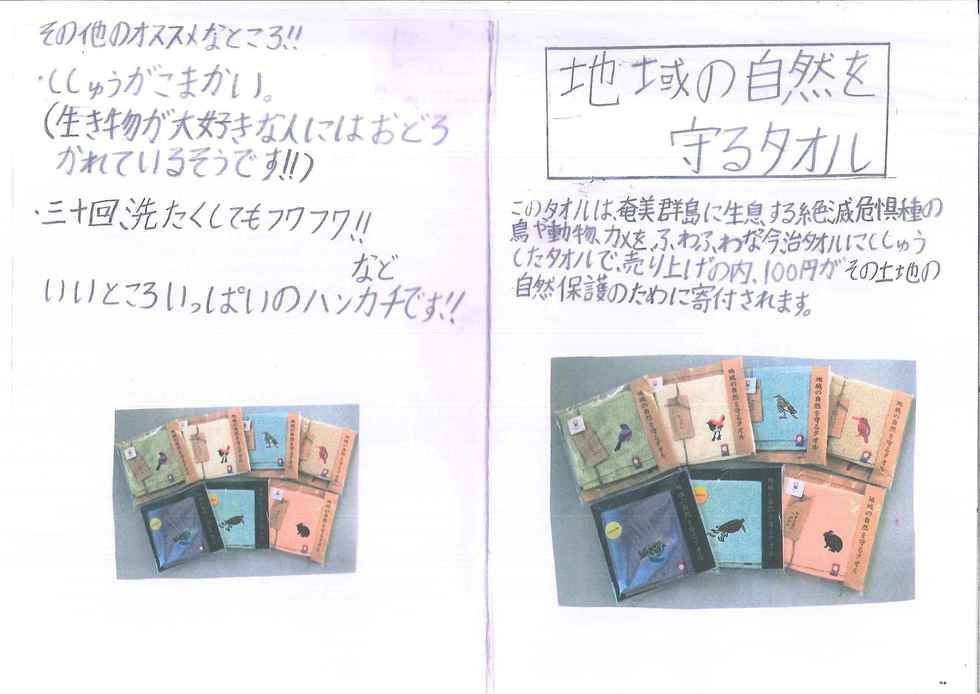 その他のオススメなところ!!
・ししゅうがこまかい。
(生き物が大好きな人にはおどろ
かれているそうです!!)
・三十回、洗たくしてもフワフワ!!
など
いいところいっぱいのハンカチです!!
地域の自然を
守るタオル
このタオルは、奄美群島に生息する絶滅危惧種の
鳥や動物、カメを、ふ、わふ、わな今治タオルにししゅう
したタオルで、売り上げの内、100円がその土地の
自然保護のために寄付されます。
地域の自然を守るタオル
地域の自然を守るタオル
地域の自然を守るタオル
地域の自然を守るタオル
地域の自然を守るタオル